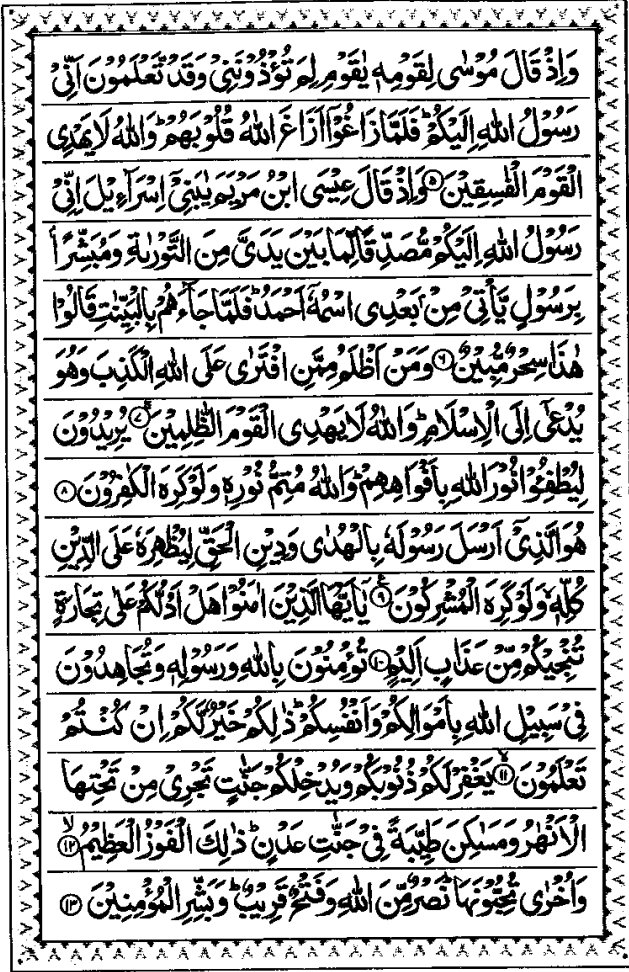 وَاِذْ قَالَ مُوْسٰى لِقَوْمِهٖ يٰقَوْمِ لِمَ تُؤْذُوْنَنِىْ وَقَدْ تَّعْلَمُوْنَ اَنِّىْ
رَسُوْلُ اللّٰهِ اِلَيْكُمْ ؕ فَلَمَّا زَاغُوْۤا اَزَاغَ اللّٰهُ قُلُوْبَهُمْ ؕ وَاللّٰهُ لَا يَهْدِى
الْقَوْمَ الْفٰسِقِيْنَ ۵ وَاِذْ قَالَ عِيْسَى ابْنُ مَرْيَمَ يٰبَنِىْۤ اِسْرَآءِيْلَ اِنِّىْ
رَسُوْلُ اللّٰهِ اِلَيْكُمْ مُّصَدِّقًا لِّمَا بَيْنَ يَدَىَّ مِنَ التَّوْرٰىةِ وَمُبَشِّرًاۢ
بِرَسُوْلٍ يَّاْتِىْ مِنْۢ بَعْدِى اسْمُهٗۤ اَحْمَدُ ؕ فَلَمَّا جَآءَهُمْ بِالْبَيِّنٰتِ قَالُوْا
هٰذَا سِحْرٌ مُّبِيْنٌ ۶ وَمَنْ اَظْلَمُ مِمَّنِ افْتَرٰى عَلَى اللّٰهِ الْكَذِبَ وَهُوَ
يُدْعٰۤى اِلَى الْاِسْلَامِ ؕ وَاللّٰهُ لَا يَهْدِى الْقَوْمَ الظّٰلِمِيْنَ ۷ يُرِيْدُوْنَ
لِيُطْفِـُٔوْا نُوْرَ اللّٰهِ بِاَفْوَاهِهِمْ ؕ وَاللّٰهُ مُتِمُّ نُوْرِهٖ وَلَوْ كَرِهَ الْكٰفِرُوْنَ ۸
هُوَ الَّذِىْۤ اَرْسَلَ رَسُوْلَهٗ بِالْهُدٰى وَدِيْنِ الْحَقِّ لِيُظْهِرَهٗ عَلَى الدِّيْنِ
كُلِّهٖ وَلَوْ كَرِهَ الْمُشْرِكُوْنَ ۹ يٰۤاَيُّهَا الَّذِيْنَ اٰمَنُوْا هَلْ اَدُلُّكُمْ عَلٰى تِجَارَةٍ
تُنْجِيْكُمْ مِّنْ عَذَابٍ اَلِيْمٍ ۱۰ تُؤْمِنُوْنَ بِاللّٰهِ وَرَسُوْلِهٖ وَتُجَاهِدُوْنَ
فِىْ سَبِيْلِ اللّٰهِ بِاَمْوَالِكُمْ وَاَنْفُسِكُمْ ؕ ذٰلِكُمْ خَيْرٌ لَّكُمْ اِنْ كُنْتُمْ
تَعْلَمُوْنَ ۱۱ يَغْفِرْ لَكُمْ ذُنُوْبَكُمْ وَيُدْخِلْكُمْ جَنّٰتٍ تَجْرِىْ مِنْ تَحْتِهَا
الْاَنْهٰرُ وَمَسٰكِنَ طَيِّبَةً فِىْ جَنّٰتِ عَدْنٍ ؕ ذٰلِكَ الْفَوْزُ الْعَظِيْمُ ۱۲
وَاُخْرٰى تُحِبُّوْنَهَا ؕ نَصْرٌ مِّنَ اللّٰهِ وَفَتْحٌ قَرِيْبٌ ؕ وَبَشِّرِ الْمُؤْمِنِيْنَ ۱۳